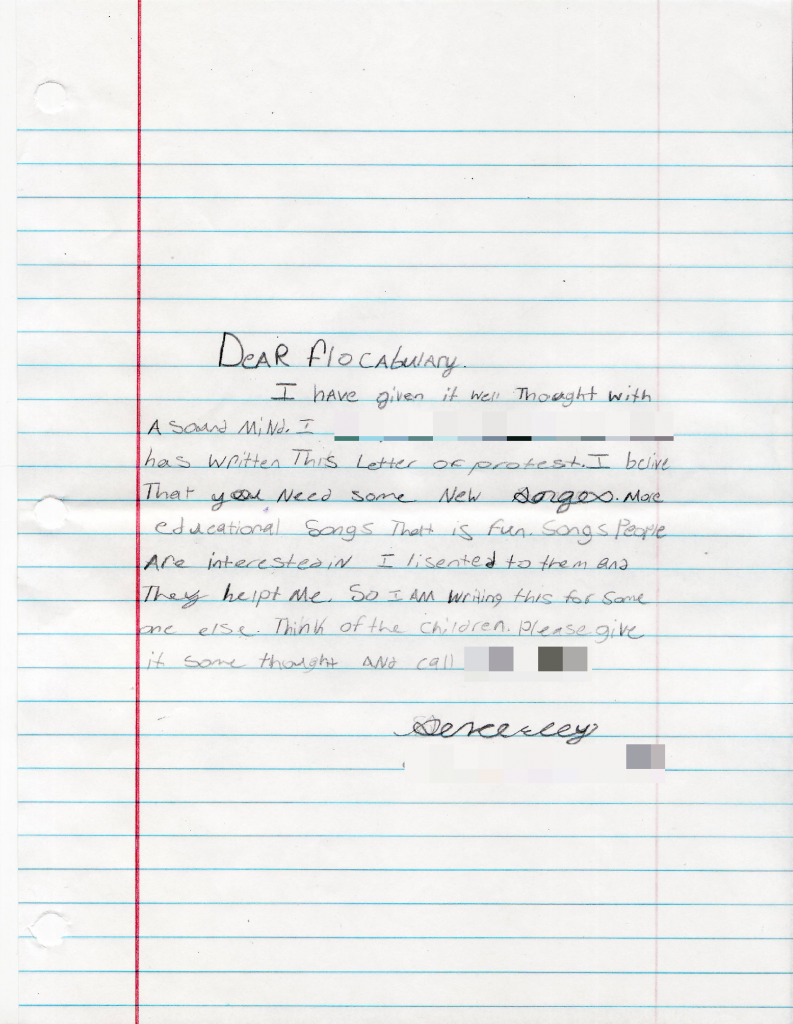 Dear Flocabulary.
I have given it well Thought with
A sound MiNd. I
has written This Letter of protest. I belive
That you Need some New songs. More
educational Songs That is fun. Songs People
Are interested iN I lisented to them and
They helpt Me. So I AM writing this for some
one else. Think of the children. Please give
it some thought ANd call